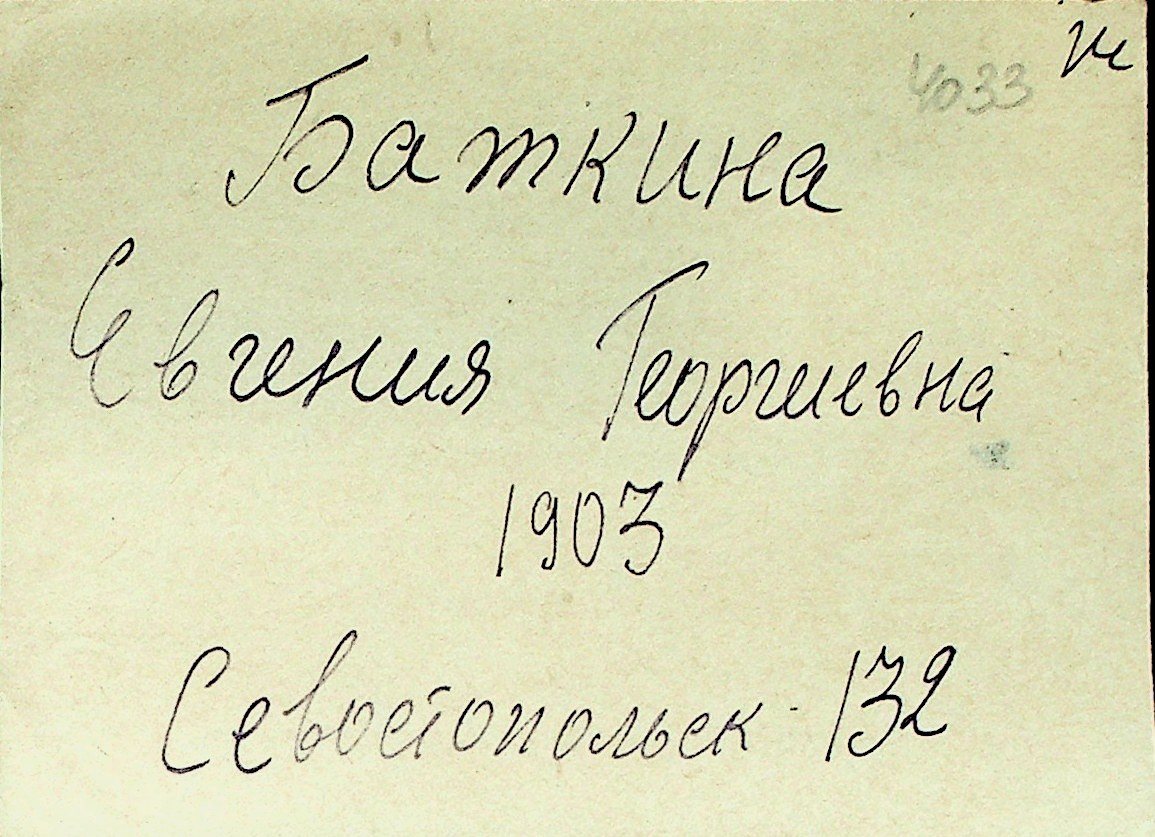 4033
Баткина
Евгения Георгиевна
1903
Севостопольск 132